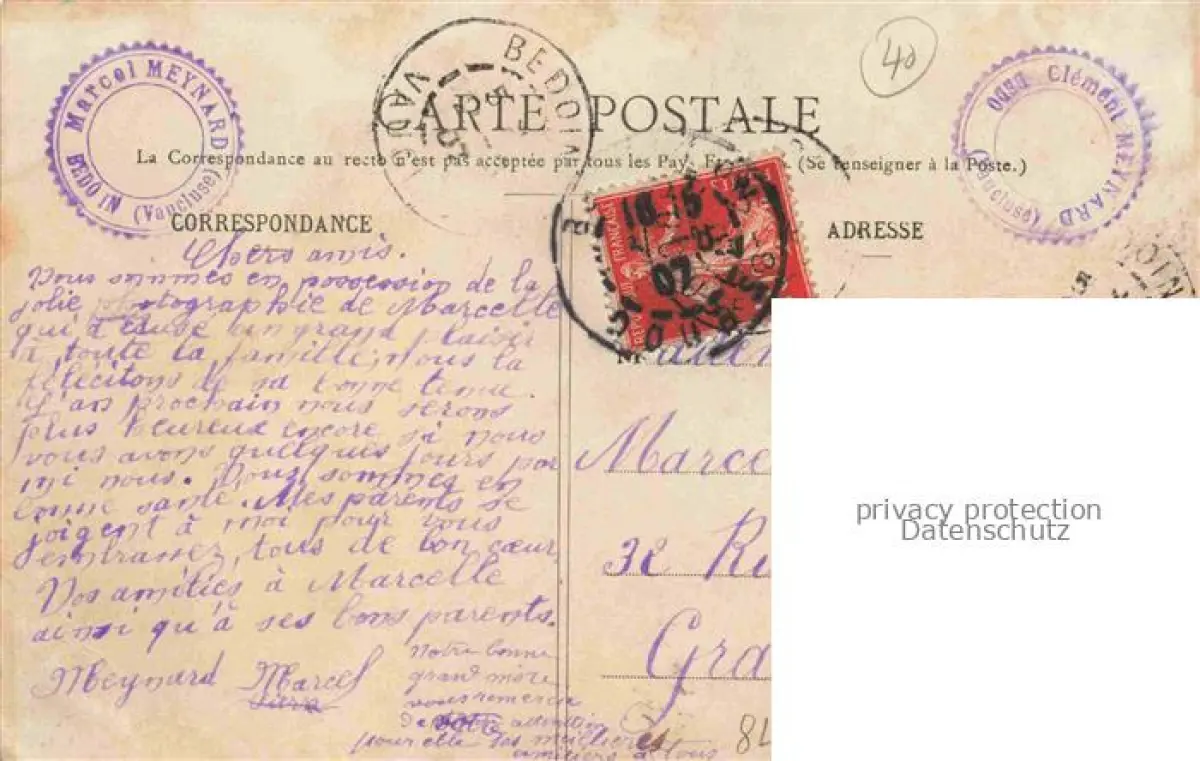 Marcel MEYNARD
BEDOIN (Vaucluse)
BEDOIN
40
Clément MEYNARD
(Vaucluse)
CARTE POSTALE
La Correspondance au recto n'est pas acceptée par tous les Pays (Se renseigner à la Poste.)
CORRESPONDANCE
ADRESSE
Chers amis.
Nous sommes en possession de la
jolie photographie de Marcelle
qui a causé un grand plaisir
à toute la famille, nous la
félicitons de sa bonne tenue.
L'an prochain nous serons
plus heureux encore si nous
vous avons quelques jours par
mi nous. Nous sommes en
bonne santé. Mes parents se
joigent à moi pour vous
embrassez, tous de bon cœur
Nos amitiés à Marcelle
ainsi qu'à ses bons parents.
Meynard Marcel
Notre bonne
grand mère
vous remercie
de votre attention
pour elle ses meilleures
amitiés à tous
REPUBLIQUE FRANÇAISE
07
M
Marce
32 Ru
Gra
84
privacy protection
Datenschutz